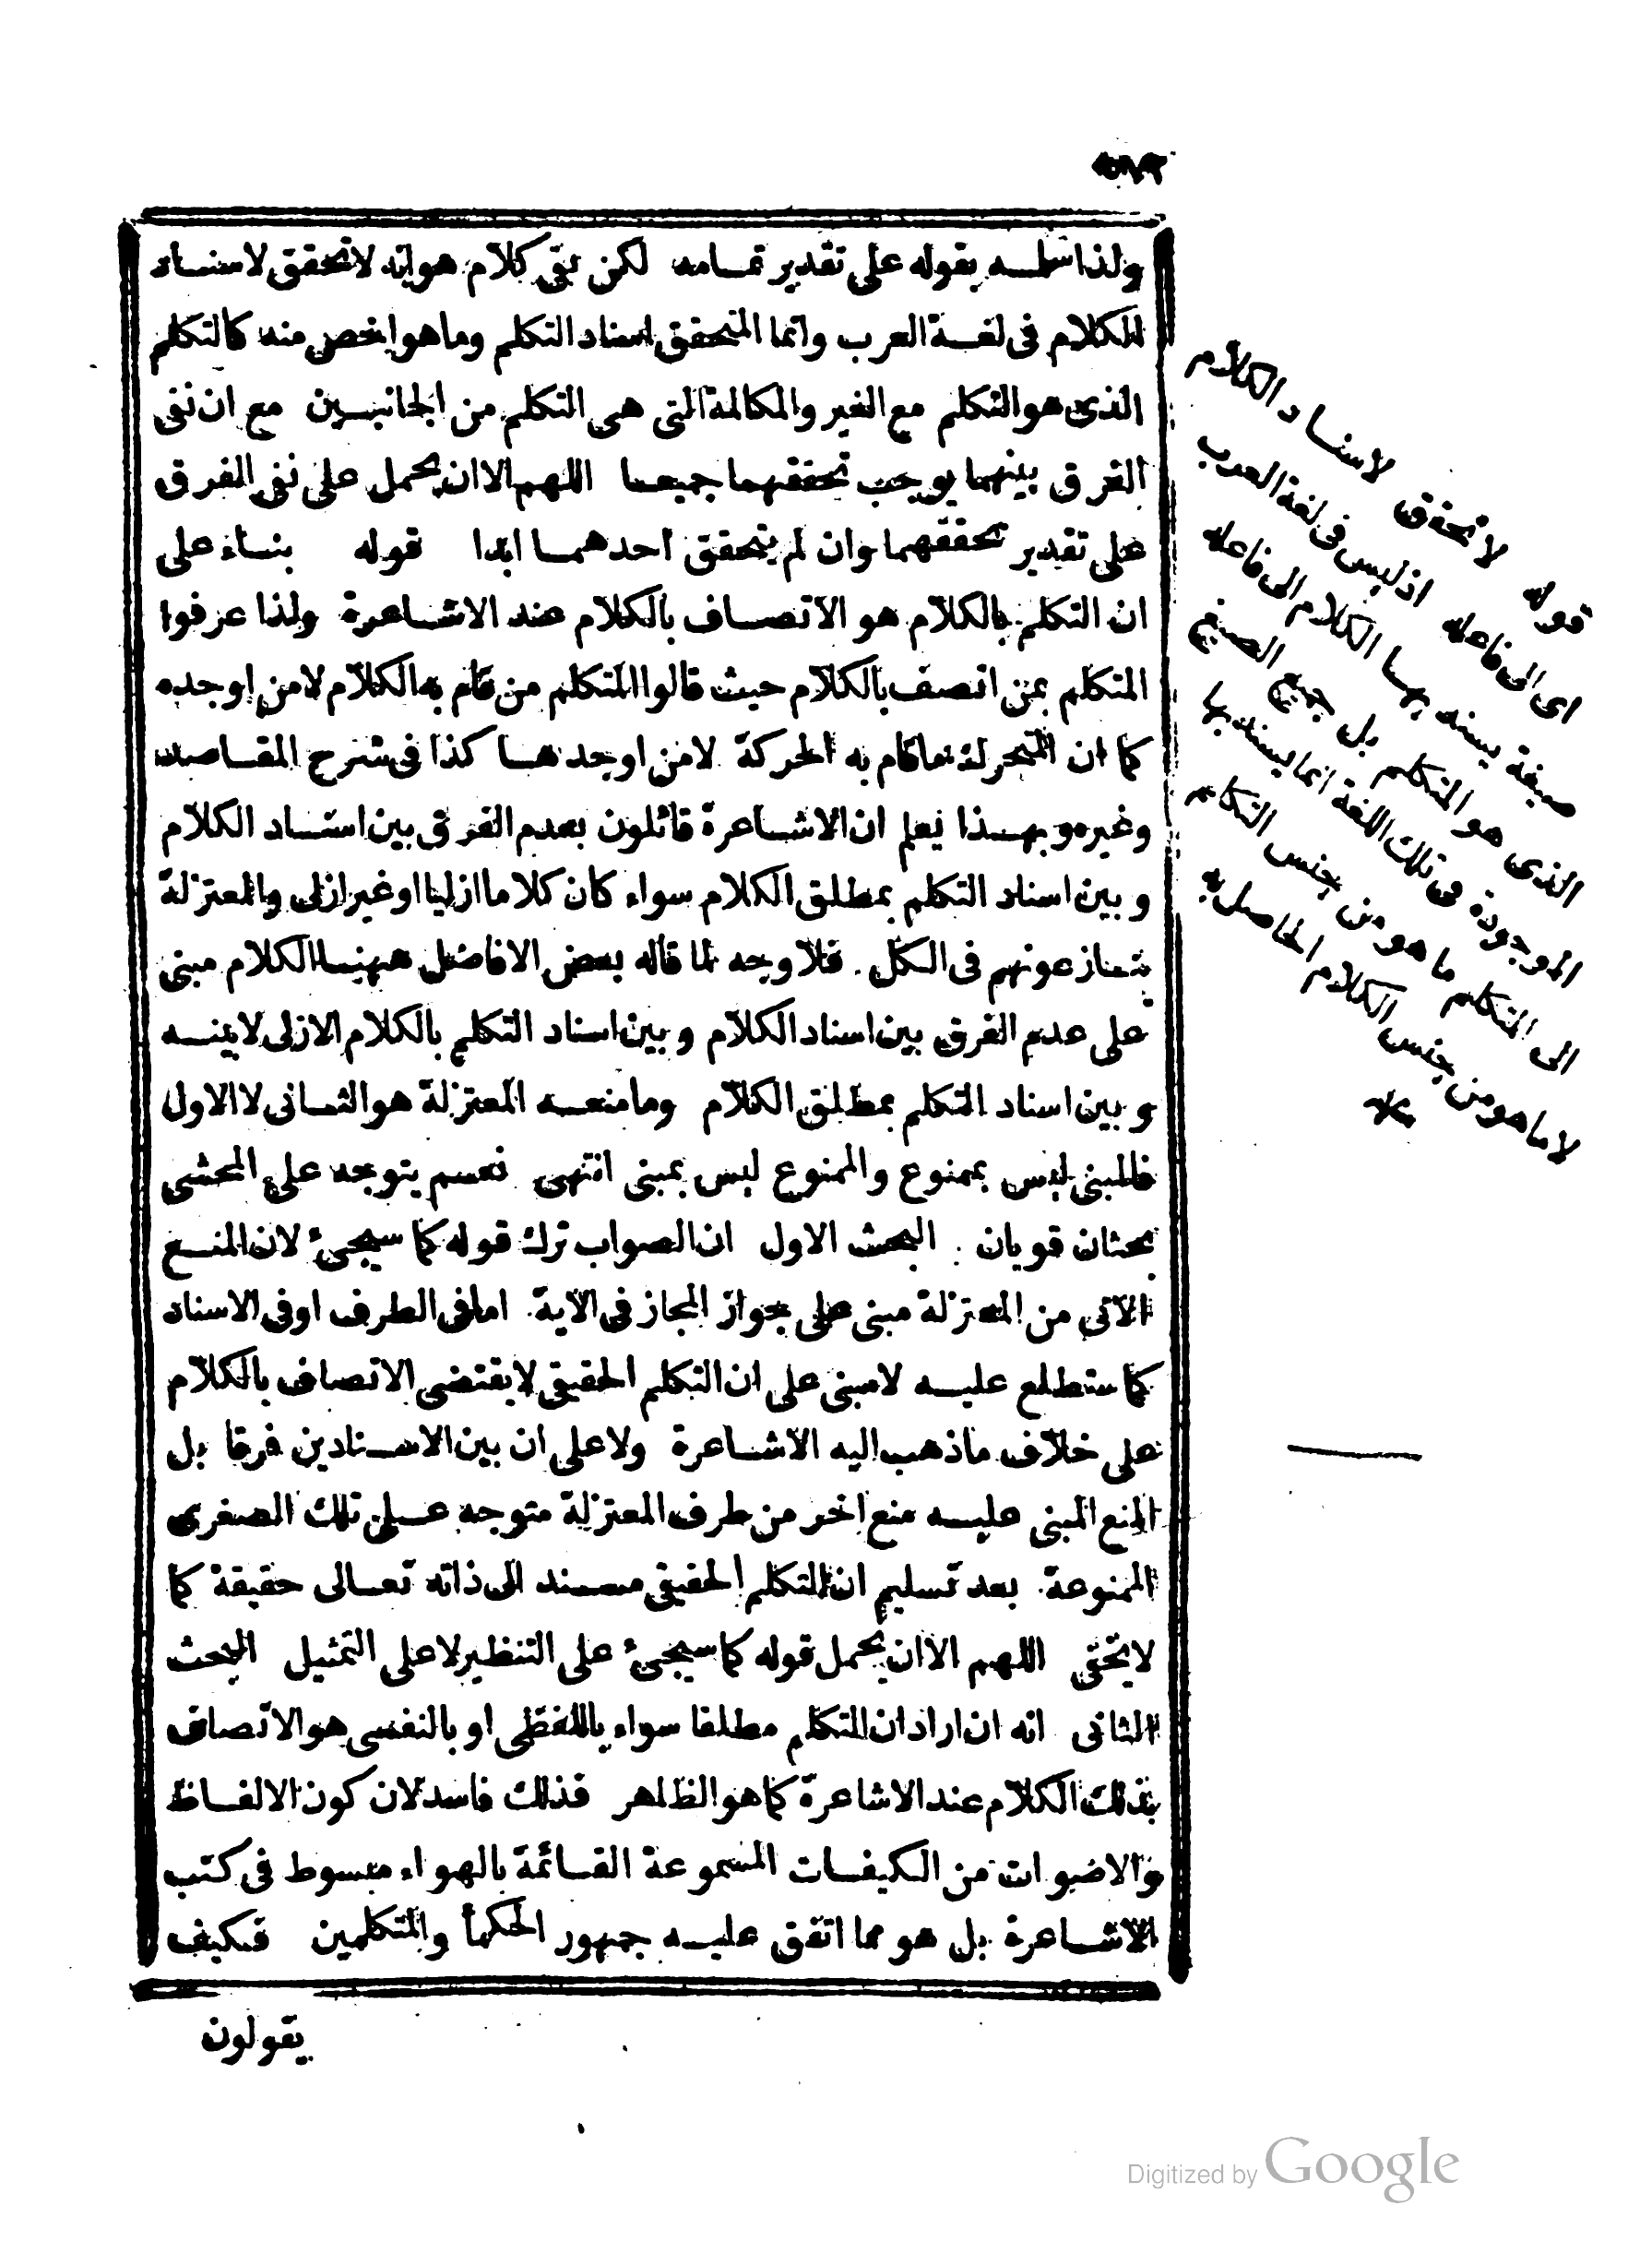 ولذا سلمه بقوله على تقدير تمامه لكن بقى كلام هو انه لا تحقق لاسناد
الكلام فى لغة العرب وانما المتحقق اسناد التكلم وما هو اخص منه كالتكليم
الذى هو التكلم مع الغير والمكالمة التى هى التكلم من الجانبين مع ان نفى
الفرق بينهما يوجب تحققهما جميعا اللهم الا ان يحمل على نفى الفرق
على تقدير تحققهما وان لم يتحقق احدهما ابدا قوله بناء على
ان التكلم بالكلام هو الاتصاف بالكلام عند الاشاعرة ولذا عرفوا
المتكلم بمن اتصف بالكلام حيث قالوا المتكلم من قام به الكلام لا من اوجده
كما ان المتحرك ما قام به الحركة لا من اوجدها كذا فى شرح المقاصد
وغيره وبهذا يعلم ان الاشاعرة قائلون بعدم الفرق بين اسناد الكلام
وبين اسناد التكلم بمطلق الكلام سواء كان كلاما ازليا او غير ازلى والمعتزلة
ينازعونهم فى الكل فلا وجه لما قاله بعض الافاضل ههنا الكلام مبنى
على عدم الفرق بين اسناد الكلام وبين اسناد التكلم بالكلام الازلى لا بينه
وبين اسناد التكلم بمطلق الكلام وما منعه المعتزلة هو الثانى لا الاول
فالمبنى ليس بممنوع والممنوع ليس بمبنى انتهى نعم يتوجه على المحشى
بحثان قويان البحث الاول ان الصواب ترك قوله كما سيجئ لان المنع
الآتى من المعتزلة مبنى على جواز المجاز فى الآية اما فى الطرف او فى الاسناد
كما ستطلع عليه لا مبنى على ان التكلم الحقيقى لا يقتضى الاتصاف بالكلام
على خلاف ما ذهب اليه الاشاعرة ولا على ان بين الاسنادين فرقا بل
المنع المبنى عليه منع اخر من طرف المعتزلة متوجه على تلك الصغرى
الممنوعة بعد تسليم ان التكلم الحقيقى مسند الى ذاته تعالى حقيقة كما
لا يخفى اللهم الا ان يحمل قوله كما سيجئ على التنظير لا على التمثيل البحث
الثانى انه ان اراد ان التكلم مطلقا سواء باللفظى او بالنفسى هو الاتصاف
بذلك الكلام عند الاشاعرة كما هو الظاهر فذلك فاسد لان كون الالفاظ
والاصوات من الكيفيات المسموعة القائمة بالهواء مبسوط فى كتب
الاشاعرة بل هو مما اتفق عليه جمهور الحكماء والمتكلمين فكيف
يقولون
قوله لا تحقق لاسناد الكلام
اى الى فاعله اذ ليس فى لغة العرب
صيغة يسند بها الكلام الى فاعله
الذى هو المتكلم بل جميع الصيغ
الموجودة فى تلك اللغة انما يسند بها
الى المتكلم ما هو من جنس التكلم
لا ما هو من جنس الكلام الحاصل به
Digitized by Google